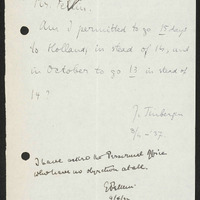 Am I permitted to go 15 days
to Holland, in stead of 14, and
in October to go 13 in stead of
14?
J. Tinbergen
I have asked the Personnel Office
who have no objection at all.